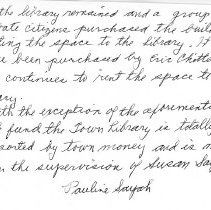 the library remained and a group
ate citizens purchased the buil
ing the space to the library. It
e been purchased by Eric Chotte
continues to rent the space t
ary.
th the exception of the aforementi
fund the Town Library is totall
orted by town money and is a
the supervision of Susan Say
Pauline Sayah